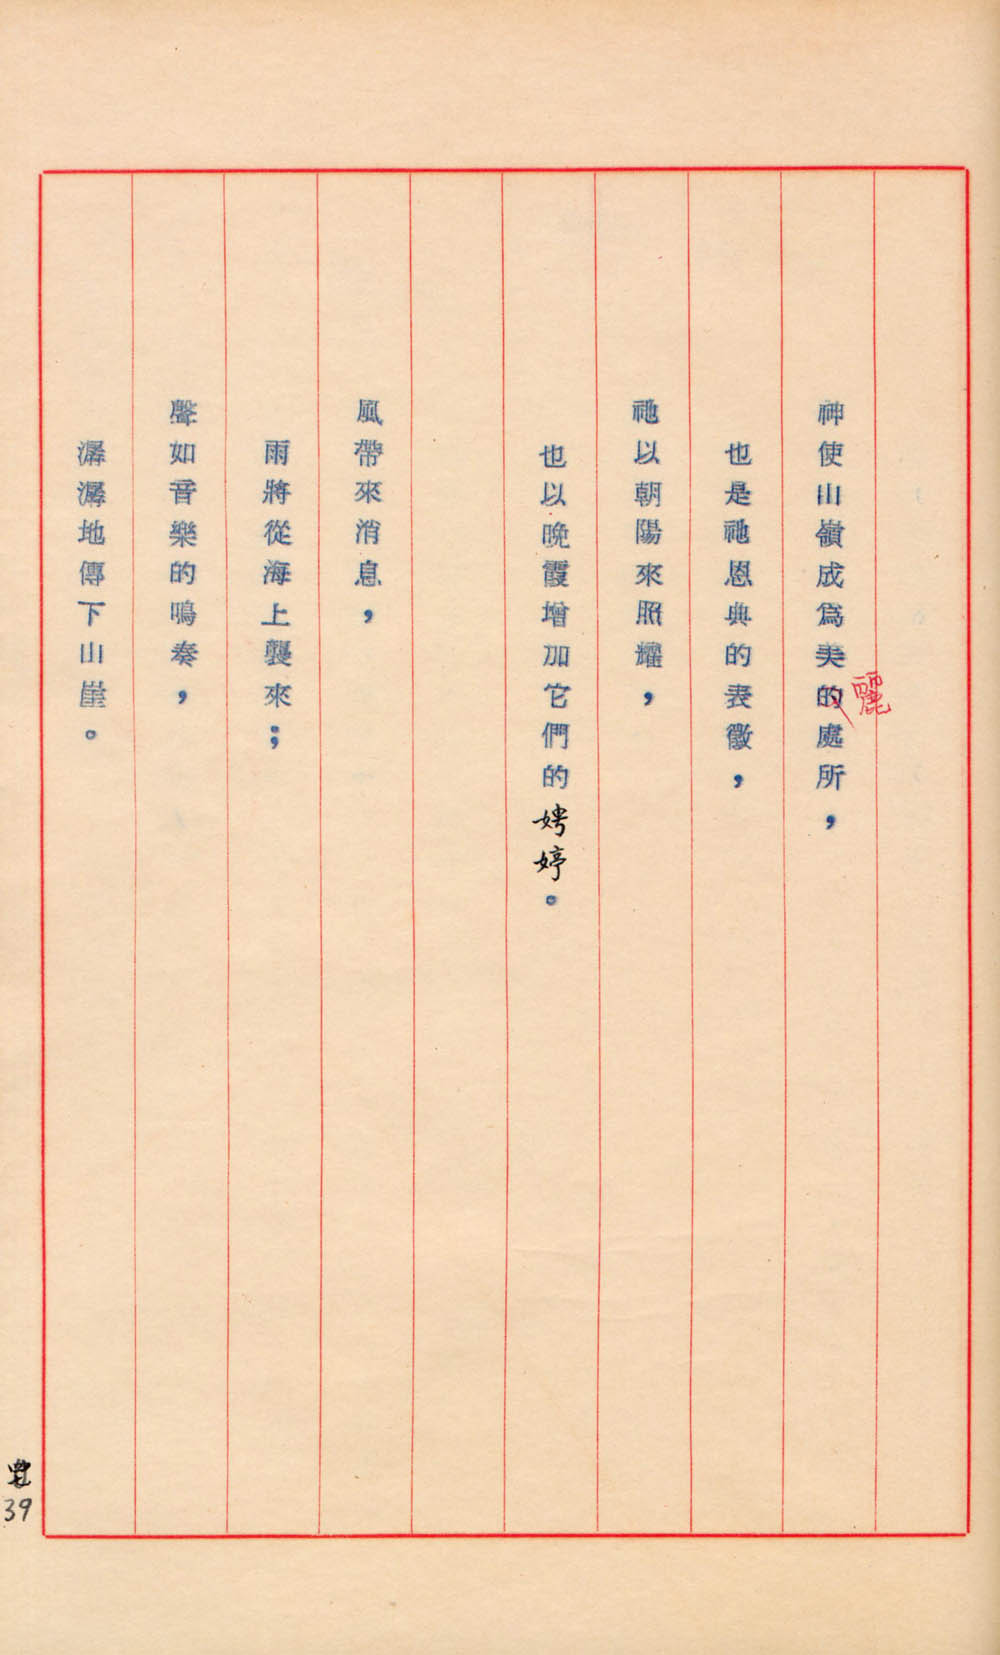 神使山嶺成為美麗的處所，
也是祂恩典的表徵，
祂以朝陽來照耀，
也以晚霞增加它們的娉婷。
風帶來消息，
雨將從海上襲來；
聲如音樂的鳴奏，
潺潺地傳下山崖。
39